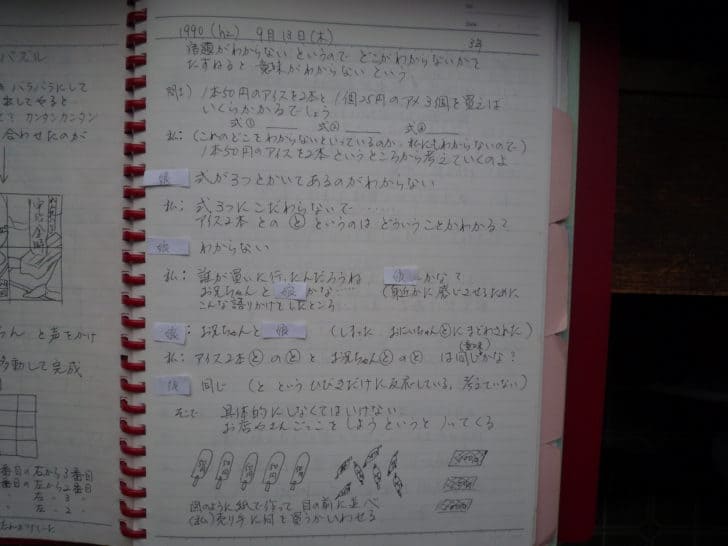 パズル
バラバラにして
出してやると
カンタンカンタン
合わせたのが
と声をかけ
移動して完成
番目の右から3番目
番目の左から2番目
〃 左〃3〃
〃 左〃2
1990 (h2) 9月13日(木)
宿題がわからないというので どこがわからないかと
たずねると 意味がわからないという
問5) 1本50円のアイスを2本と 1個25円のアメ3個を買えば
いくらかかるでしょう
式① 式② 式③
私:(これのどこをわからないといっているのか、私にもわからないので)
1本50円のアイスを2本というところから考えていくのよ
娘 式が3つとかいてあるのがわからない
私: 式3つにこだわらないで……
アイス2本とのとというのは どういうことかわかる?
娘 わからない
私: 誰が買いに行ったんだろうね 娘 かな?
お兄ちゃんと 娘 かな… (身近かに感じさせるために
こんな語りかけをしたところ
娘: お兄ちゃんと 娘 (しまった おにいちゃんとにまどわされた)
私: アイス2本とのとと お兄ちゃんとのとは(意味)同じかな?
娘 同じ (とというひびきだけに反応している、考えていない)
そこで 具体的にしなくてはいけない
お店やさんごっこをしようというと のってくる
50円 50円 50円 50円 50円
図のように紙で作って 目の前に並べ
(私)売り手に何を買うかいわせる